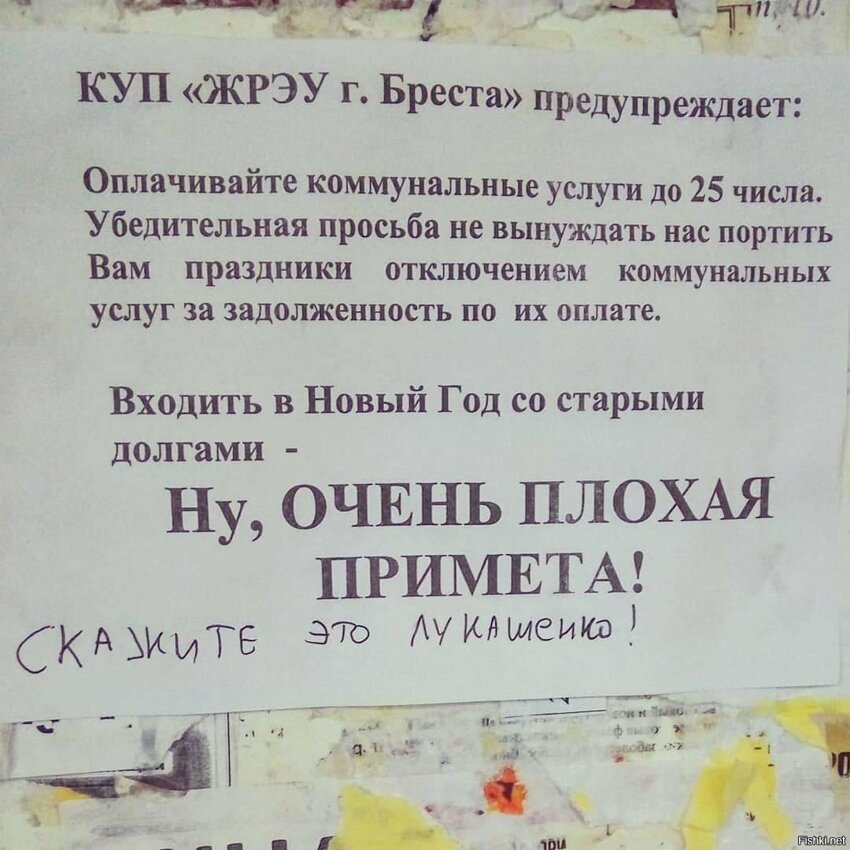 КУП «ЖРЭУ г. Бреста» предупреждает:
Оплачивайте коммунальные услуги до 25 числа.
Убедительная просьба не вынуждать нас портить
Вам праздники отключением коммунальных
услуг за задолженность по их оплате.
Входить в Новый Год со старыми
долгами -
Ну, ОЧЕНЬ ПЛОХАЯ
ПРИМЕТА!
СКАЖИТЕ ЭТО ЛУКАШЕНКО!
Fishki.net